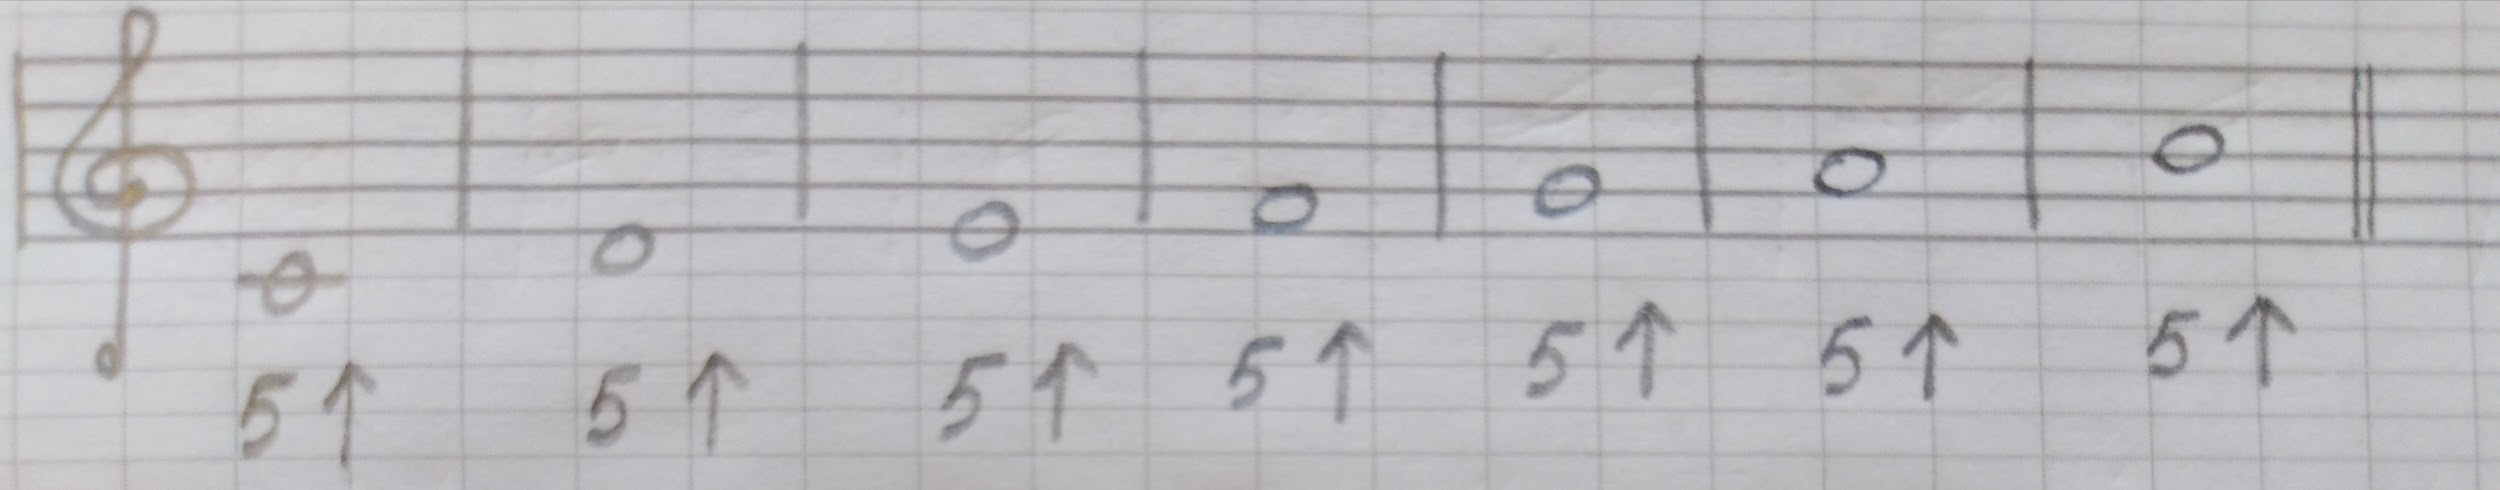 5↑ 5↑ 5↑ 5↑ 5↑ 5↑ 5↑